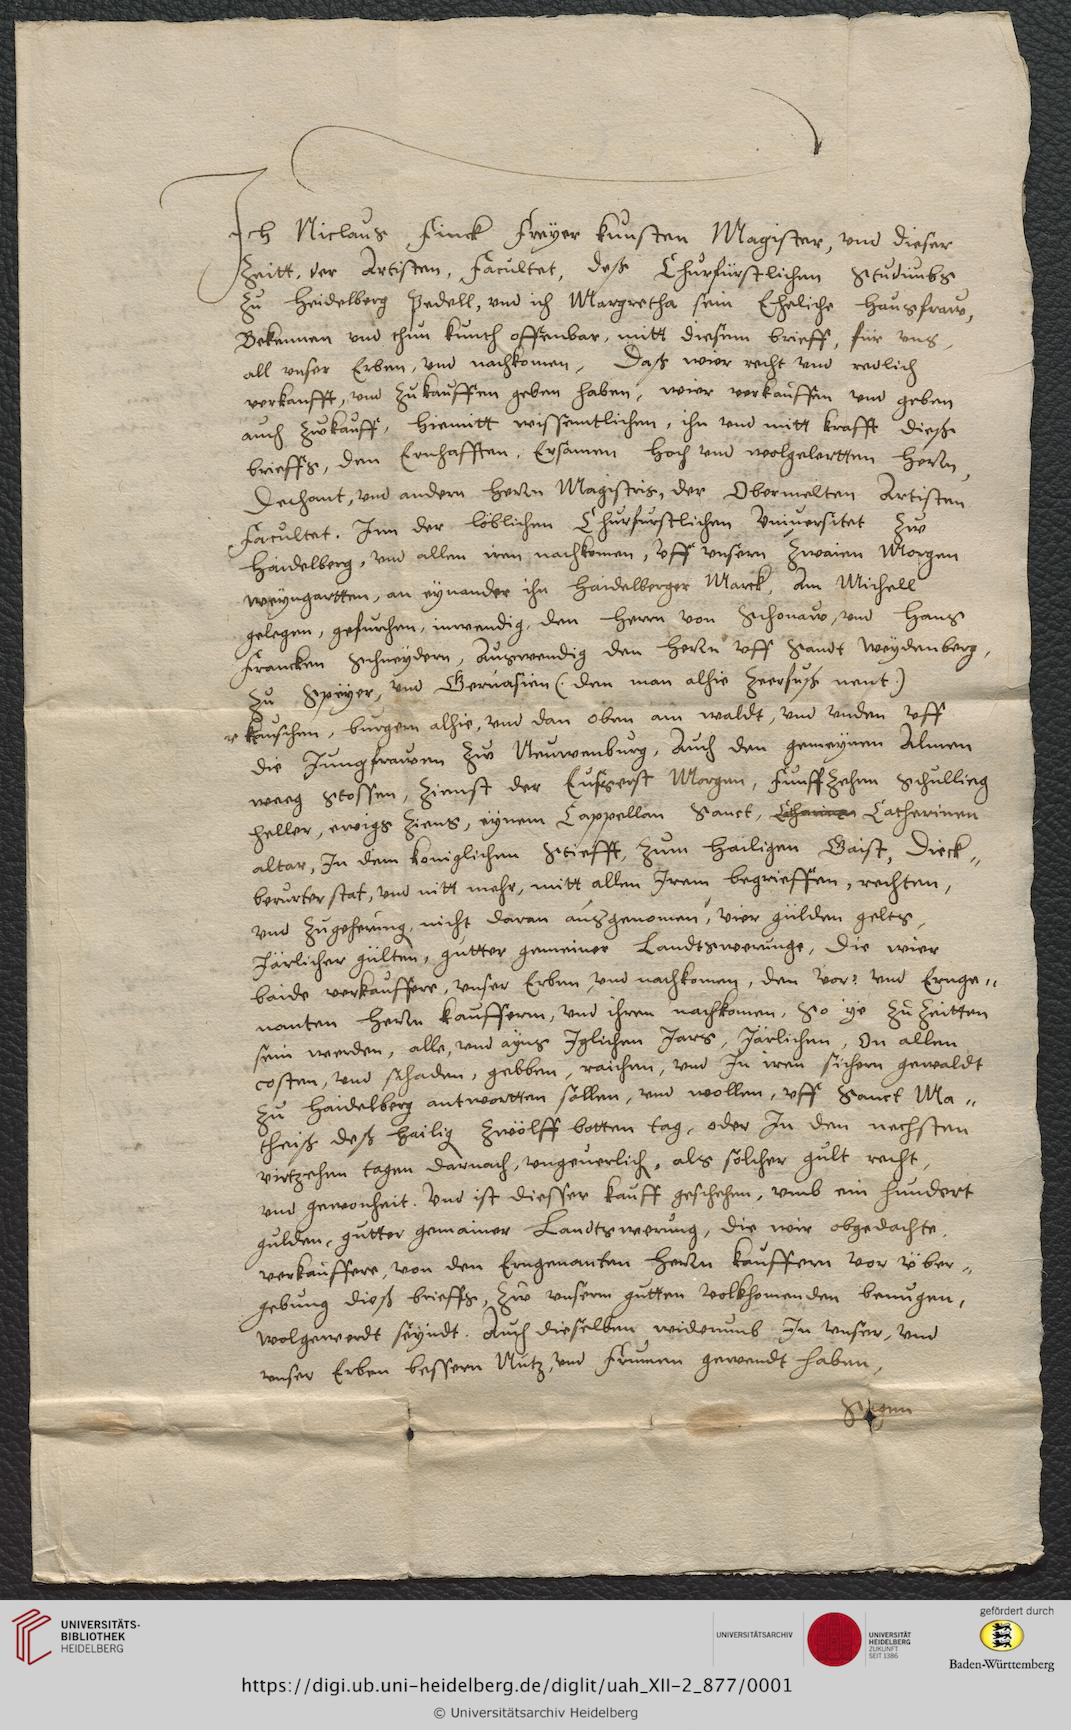 Ich Niclaus Finck Freyer kunsten Magister, vnd dieser
Zeitt, der Artisten, Facultet, deß Churfürstlichen Studiumbs
zu Heidelberg Pedell, vnd ich Margretha sein Eheliche haußfraw,
Bekennen vnd thun kunth offenbar, mitt diesem brieff, für vns,
all vnser Erben, vnd nachkomen, Daß wier recht vnd redlich
verkaufft, vnd zukauffen geben haben, wier verkauffen vnd geben
auch zwkauff, hiemitt wissentlichen, ihn vnd mitt krafft dieß
brieffs, den Ernhafften, Ersamen hoch vnd wolgelertten herrn,
Dechant, vnd andern herrn Magistris, der Obermelten Artisten
Facultet. Inn der löblichen Churfurstlichen Vniuersitet zw
Haidelberg, vnd allen iren nachkomen, vff vnsern zwaien Morgen
weyngartten, an eynander ihn Haidelberger Marck, Am Michell
gelegen, gefurchen, inwendig, den herrn von Schonaw, vnd Hans
Francken Schneydern, Auswendig den herrn vff Sandt Weydenberg,
zu Speyer, vnd Geruasien (den man alhie Zeerfuß nent.)
kauschen, burgern alhie, vnd dan oben am waldt, vnd vnden vff
die Jungfrawen zw Neuwenburg, Auch den gemeynen Almen
weeg stossen, zienst der Eusserst Morgen, Funffzehen Schullieg
heller, ewigs ziens, eynem Cappellan Sanct, Catherinen
altar, In dem koniglichen Stiefft, zum hailigen Gaist, Dieck„
berurter stat, vnd nitt mehr, mitt allen Irem begrieffen, rechten,
vnd zugeherung, nicht daran außgenomen, vier gülden gelts,
Järlicher gülten, gutter gemeiner Landtswerunge, die wier
baide verkauffere, vnser Erben vnd nachkomen, den vor: vnd Ernge„
nanten herrn kauffern, vnd ihren nachkomen, So ye zu Zeitten
sein werden, alle, vnd ayns Iglichen Jars, Järlichen, On allen
costen, vnd schaden, gebben, raichen, vnd In iren sichern gewaldt
zu Haidelberg antwortten sollen, vnd wollen, vff Sanct Ma„
theiß deß hailig zwölff botten tag, oder In den nechsten
virtzehen tagen darnach, vngeuerlich, als solcher gult recht,
vnd gewonheit. Vnd ist diesser kauff geschehen, vmb ein hundert
gulden, gutter gemainer Landtswerung, die wir obgedachte,
verkauffere, von den Erngenanten herrn kauffern vor vber„
gebung dieß brieffs, zw vnserm gutten volkhomenden benugen,
wolgewerdt seyndt. Auch dieselben widerumb In vnser, vnd
vnser Erben bessern Nutz, vnd Frumen gewendt haben,
Sagen
UNIVERSITÄTS-
BIBLIOTHEK
HEIDELBERG
UNIVERSITÄTSARCHIV
UNIVERSITÄT
HEIDELBERG
ZUKUNFT
SEIT 1386
gefördert durch
Baden-Württemberg
https://digi.ub.uni-heidelberg.de/diglit/uah_XII-2_877/0001
© Universitätsarchiv Heidelberg